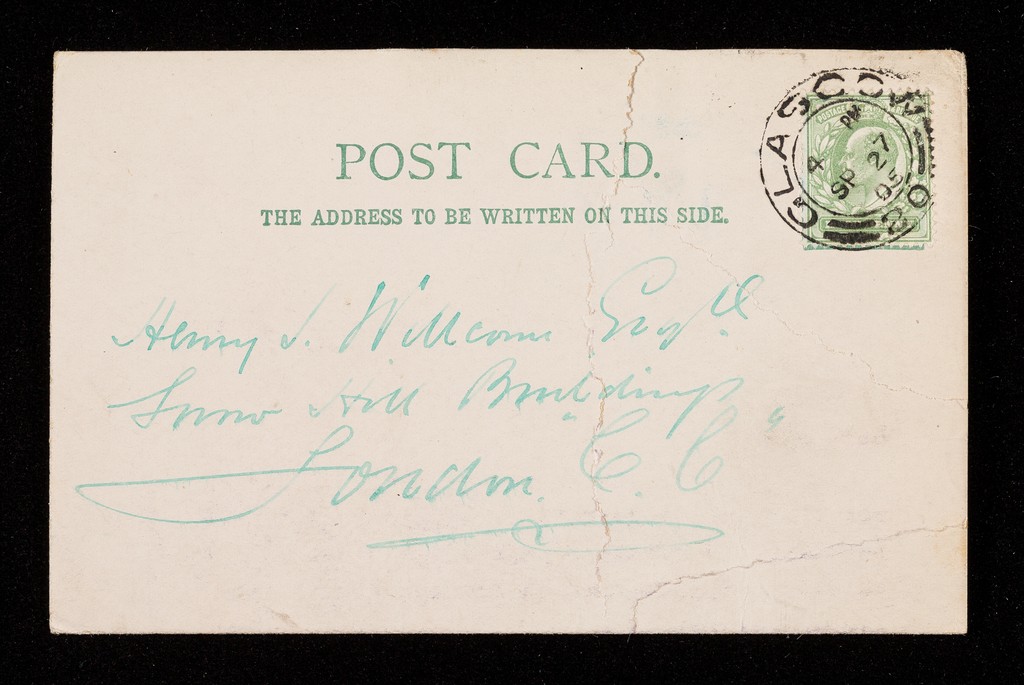 POST CARD.
THE ADDRESS TO BE WRITTEN ON THIS SIDE.
GLASGOW
4 PM
SP 27
05
Henry S. Wellcome Esqre
Snow Hill Buildings
London. "E. C"